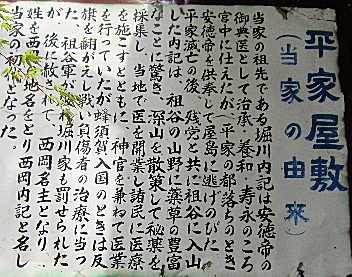 平家屋敷
(当家の由来)
当家の祖先である堀川内記は安徳帝の
御典医として治承・養和・寿永のころ
宮中に仕えたが(平家の都落ちのとき
安徳帝を供奉して屋島に逃げのびた
平家滅亡の後、残党と共に祖谷に入山
した内記は、祖谷の山野に薬草の豊富
なことに驚き、深山を散策して秘薬を
採集し、当地で医を開業し諸民に医療
を施こすとともに 神官を兼ねて医業
を行っていたが蜂須賀入国のときは反
旗を翻がえし戦い負傷者の治療に当っ
た。祖谷軍が敗れ堀川家も罰せられた
が 後に赦されて 西岡名主となり
姓を西岡(地名をとり西岡内記と名し
当家の初代となった。